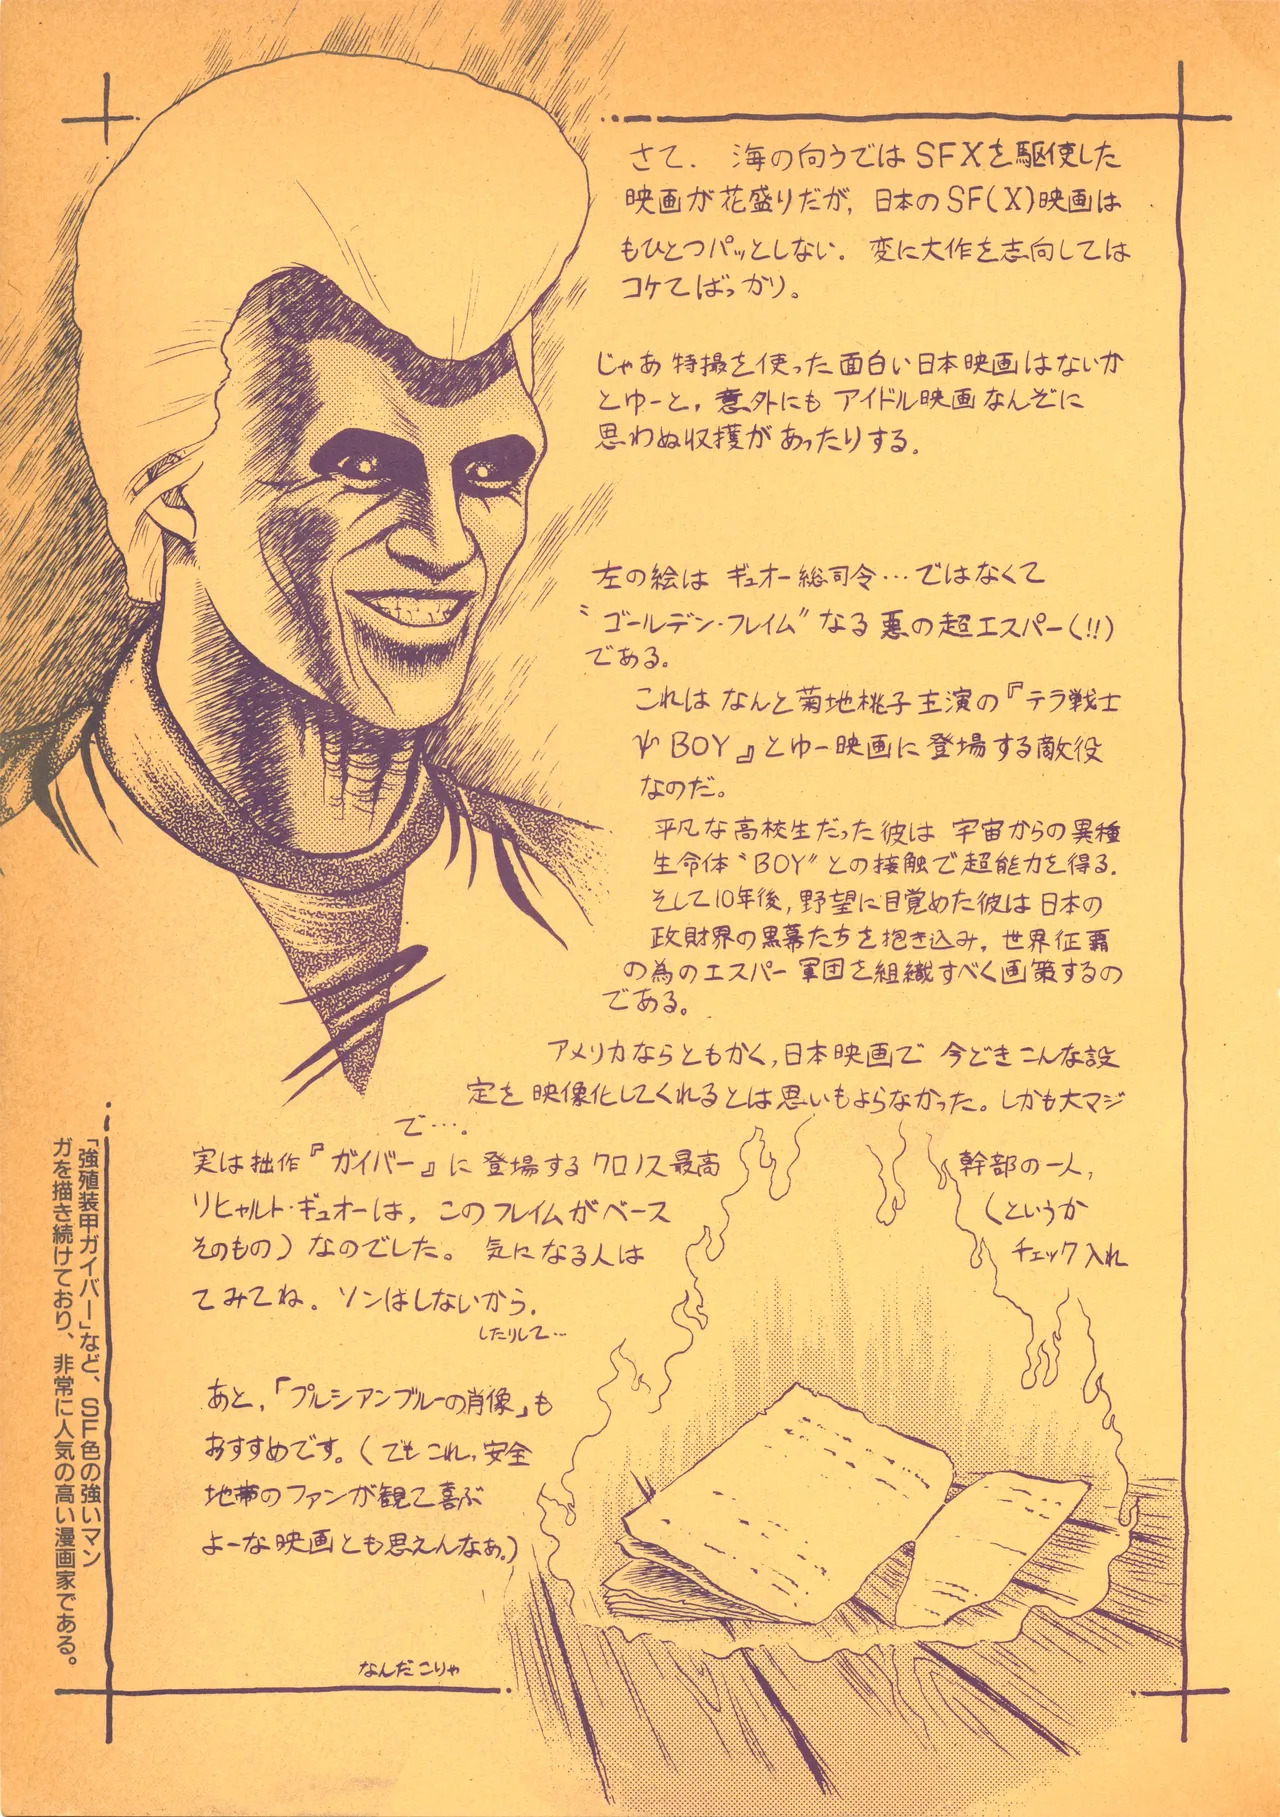 さて、海の向うではSFXを駆使した
映画が花盛りだが、日本のSF(X)映画は
もひとつパッとしない。変に大作を志向しては
コケてばっかり。
じゃあ特撮を使った面白い日本映画はないか
とゆーと、意外にもアイドル映画なんぞに
思わぬ収穫があったりする。
左の絵はギュオー総司令…ではなくて
〝ゴールデン・フレイム〟なる悪の超エスパー(!!)
である。
これはなんと菊地桃子主演の『テラ戦士
ΨBOY』とゆー映画に登場する敵役
なのだ。
平凡な高校生だった彼は宇宙からの異種
生命体〝BOY〟との接触で超能力を得る。
そして10年後、野望に目覚めた彼は日本の
政財界の黒幕たちを抱き込み、世界征覇
の為のエスパー軍団を組織すべく画策するの
である。
アメリカならともかく、日本映画で今どきこんな設
定を映像化してくれるとは思いもよらなかった。しかも大マジ
で…。
実は拙作『ガイバー』に登場するクロノス最高幹部の一人、
リヒャルト・ギュオーは、このフレイムがベース(というか
そのもの)なのでした。気になる人はチェック入れ
てみてね。ソンはしないから。
したりして…
あと、「プルシアンブルーの肖像」も
おすすめです。(でもこれ、安全
地帯のファンが観て喜ぶ
よーな映画とも思えんなぁ。)
なんだこりゃ
「強殖装甲ガイバー」など、SF色の強いマン
ガを描き続けており、非常に人気の高い漫画家である。